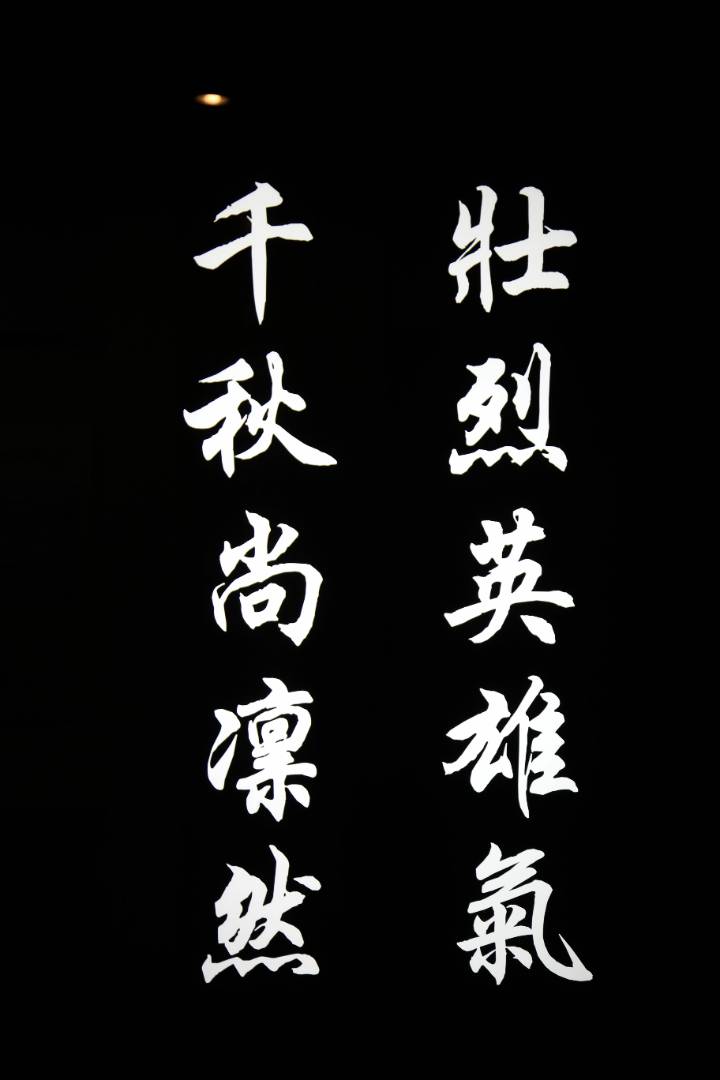 壯烈英雄氣
千秋尚凛然